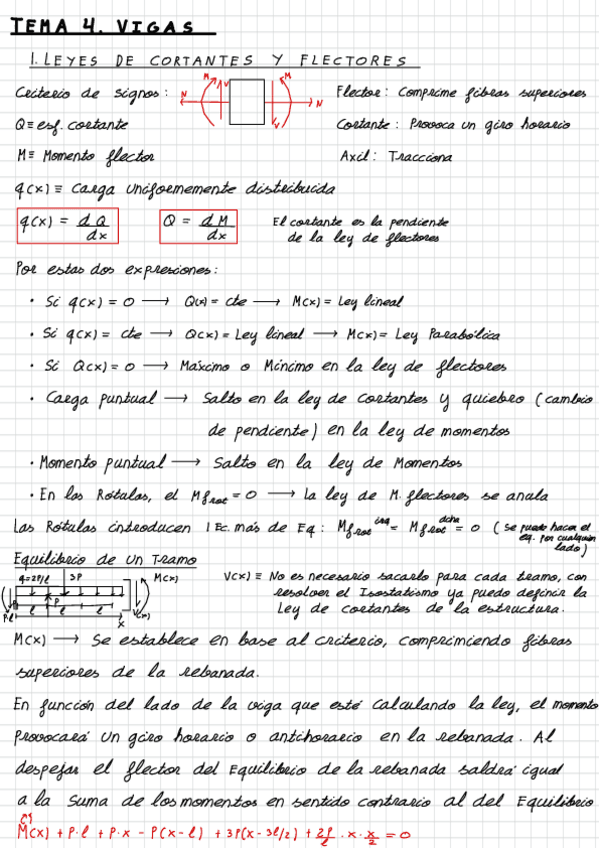 TEMA 4. VIGAS
1. LEYES DE CORTANTES Y FLECTORES
Criterio de signos: N M V M V N Flector: Comprime fibras superiores
Q ≡ esf. cortante Cortante: Provoca un giro horario
M ≡ Momento flector Axil: Tracciona
q(x) ≡ Carga Uniformemente distribuida
q(x) = dQ/dx Q = dM/dx El cortante es la pendiente
de la ley de flectores
Por estas dos expresiones:
• Si q(x) = 0 → Q(x) = cte → M(x) = Ley lineal
• Si q(x) = cte → Q(x) = Ley lineal → M(x) = Ley Parabólica
• Si Q(x) = 0 → Máximo o Mínimo en la ley de flectores
• Carga puntual → Salto en la ley de cortantes y quiebro (cambio
de pendiente) en la ley de momentos
• Momento puntual → Salto en la ley de Momentos
• En las Rótulas, el Mf rot = 0 → la ley de M. flectores se anula
Las Rótulas introducen 1 Ec. más de Eq: Mf rot izq = Mf rot dcha = 0 (se puede hacer el
eq. por cualquier
lado)
Equilibrio de un Tramo
q=2P/l 3P M(x) V(x) ≡ No es necesario sacarlo para cada tramo, con
resolver el Isostatismo ya puedo definir la
P·l P l l l x V(x) Ley de cortantes de la estructura.
M(x) → Se establece en base al criterio, comprimiendo fibras
superiores de la rebanada.
En función del lado de la viga que esté calculando la ley, el momento
provocará un giro horario o antihorario en la rebanada. Al
despejar el flector del Equilibrio de la rebanada saldrá igual
a la suma de los momentos en sentido contrario al del Equilibrio
M(x) + P·l + P·x - P(x-l) + 3P(x-3l/2) + 2P/l · x · x/2 = 0